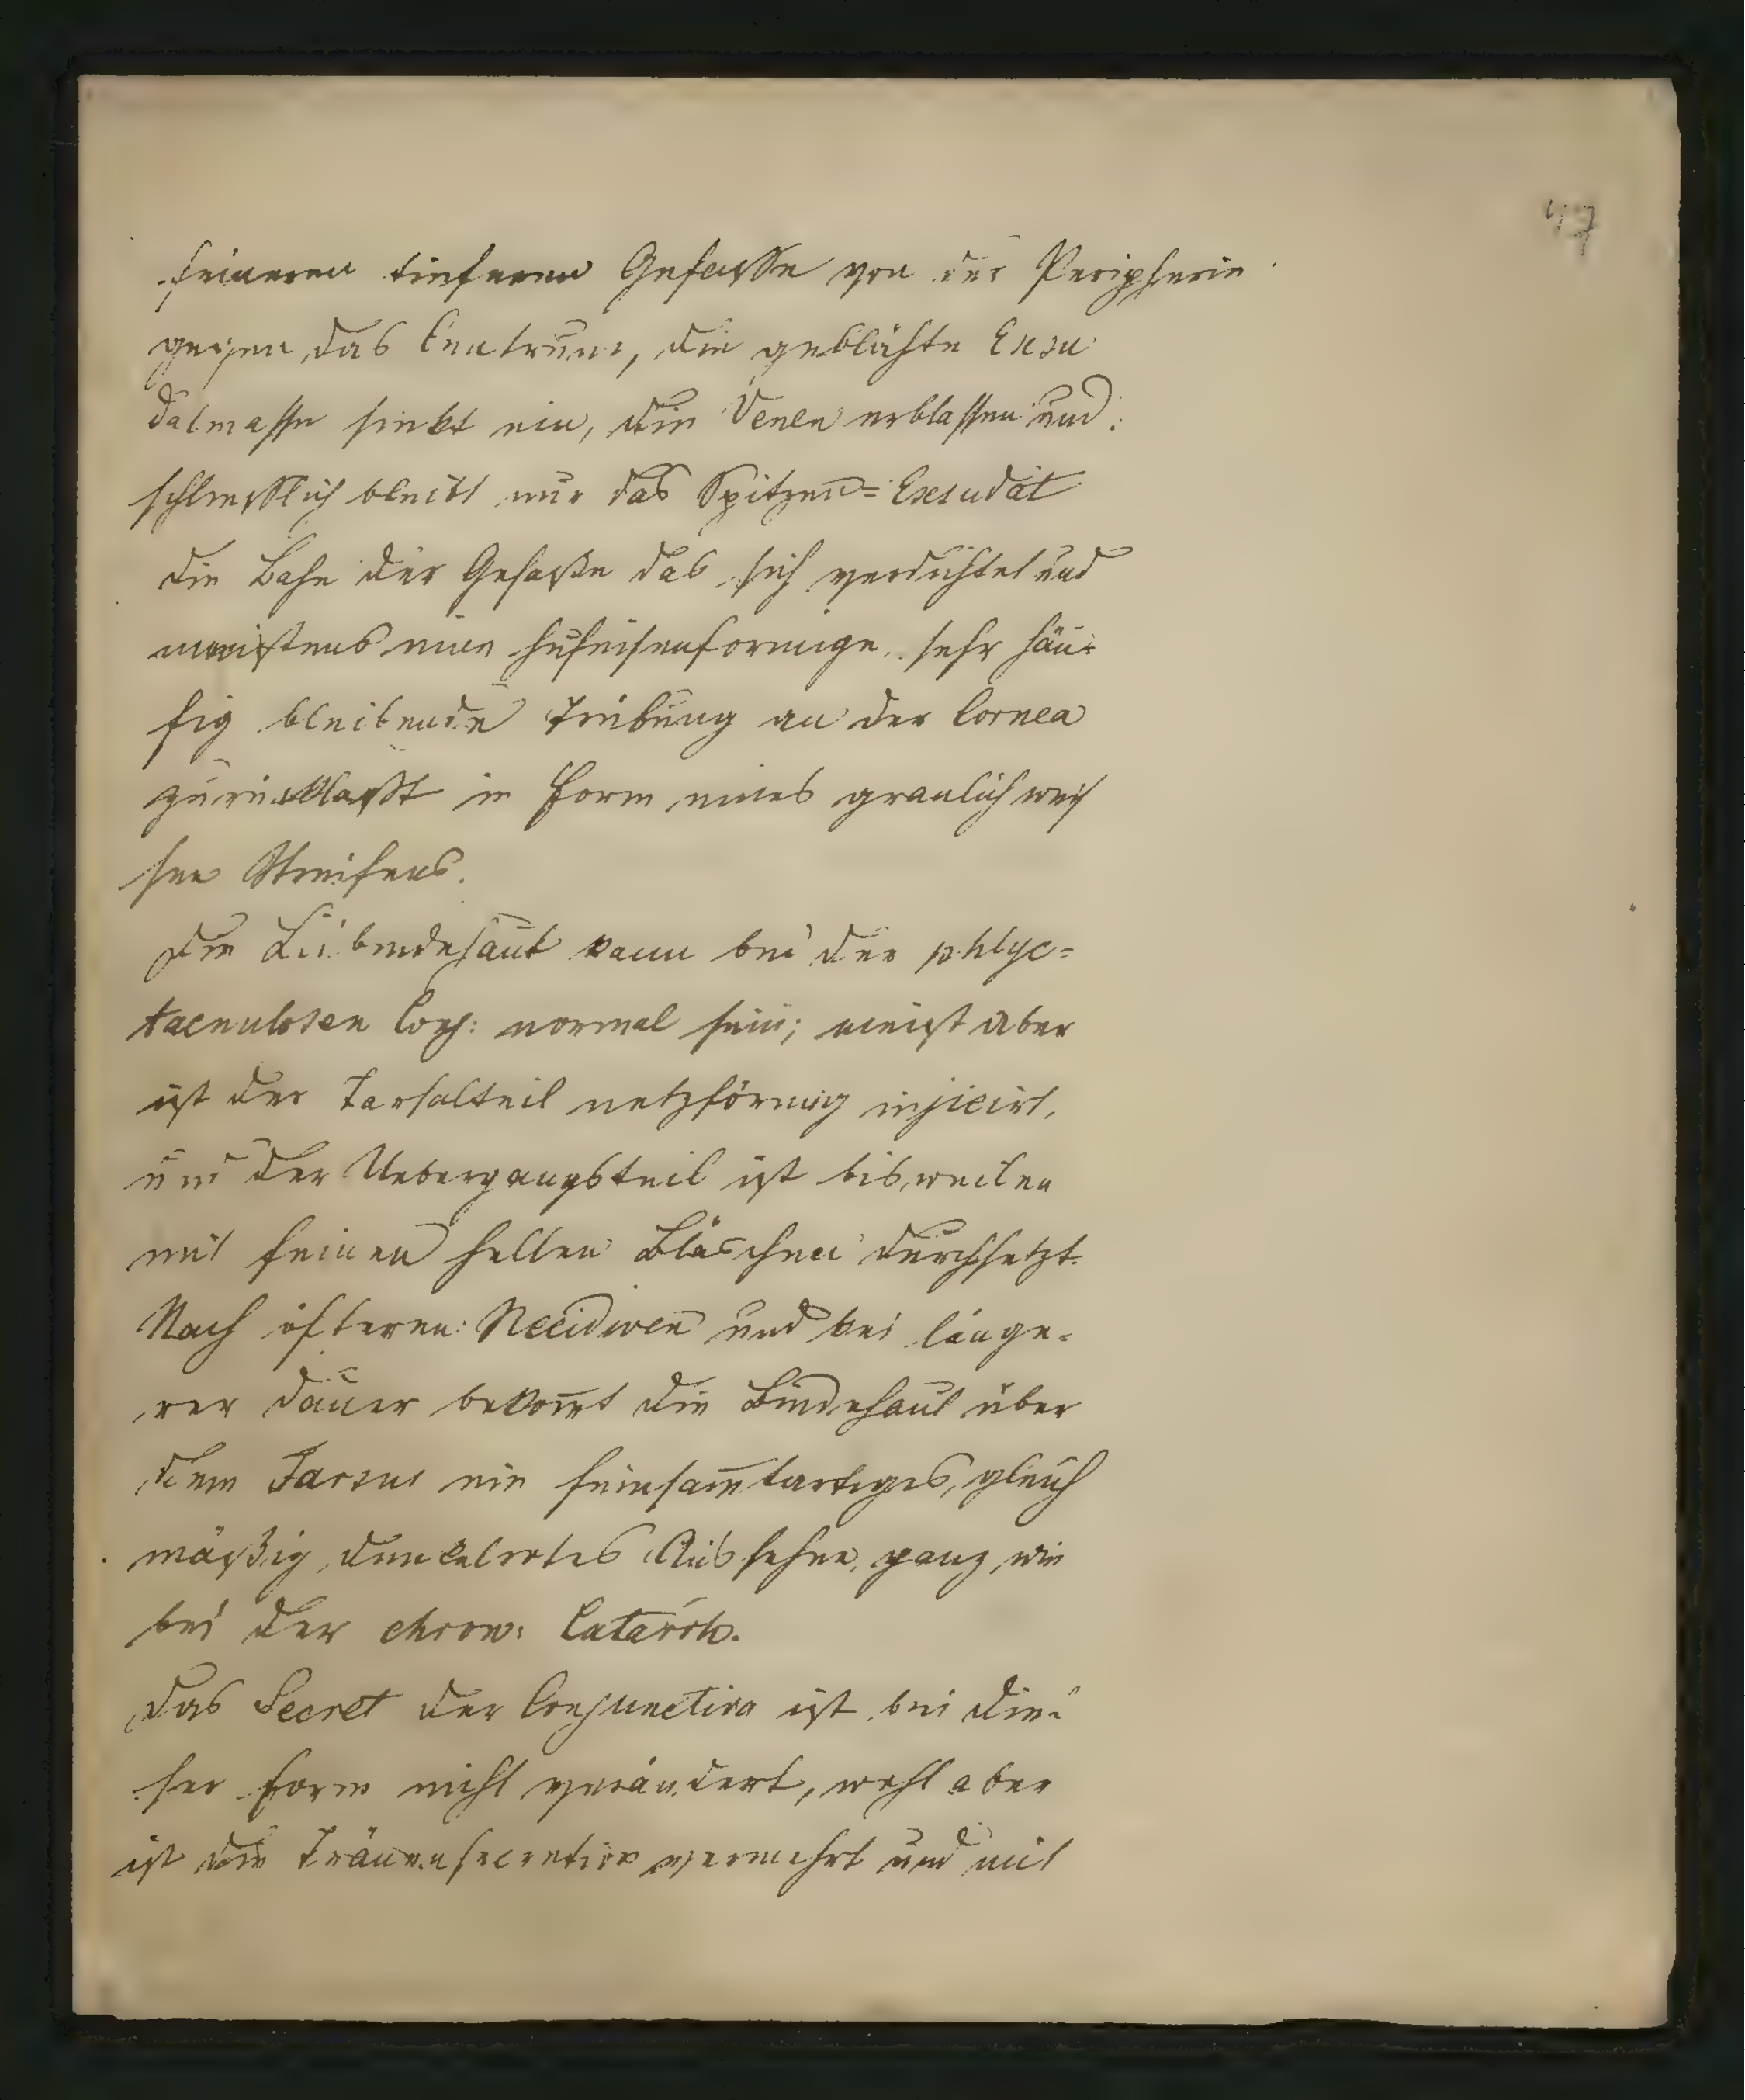 47
feineren tieferen Gefässe von der Peripherie
gegen das Centrum, die geblähte Exsu
datmasse sinkt ein, die Venen erblassen und
schliesslich bleibt nur das Spitzen=Exsudat
die Bahn der Gefäße das sich verdichtet und
meistens eine hufeisenförmige sehr häu=
fig bleibende Trübung an der Cornea
zurücklaßt in Form eines graulich weis
sen Streifens.
Die Lidbindehaut kann bei der phlyc=
taenulosen Conj: normal sein; meist aber
ist der Tarsalteil netzförmig injicirt,
und der Uebergangsteil ist bisweilen
mit feinen hellen Bläschen durchsetzt.
Nach öfteren Recidiven und bei länge=
rer Dauer bekom̄t die Bindehaut über
dem Tarsus ein feinsam̄tartiges, gleich
mäßig dunkelrotes Aussehen, ganz wie
bei der chron: Catarrh.
Das Secret der Conjunctiva ist bei die=
ser Form nicht verändert, wohl aber
ist die Tränensecretion vermehrt und mit